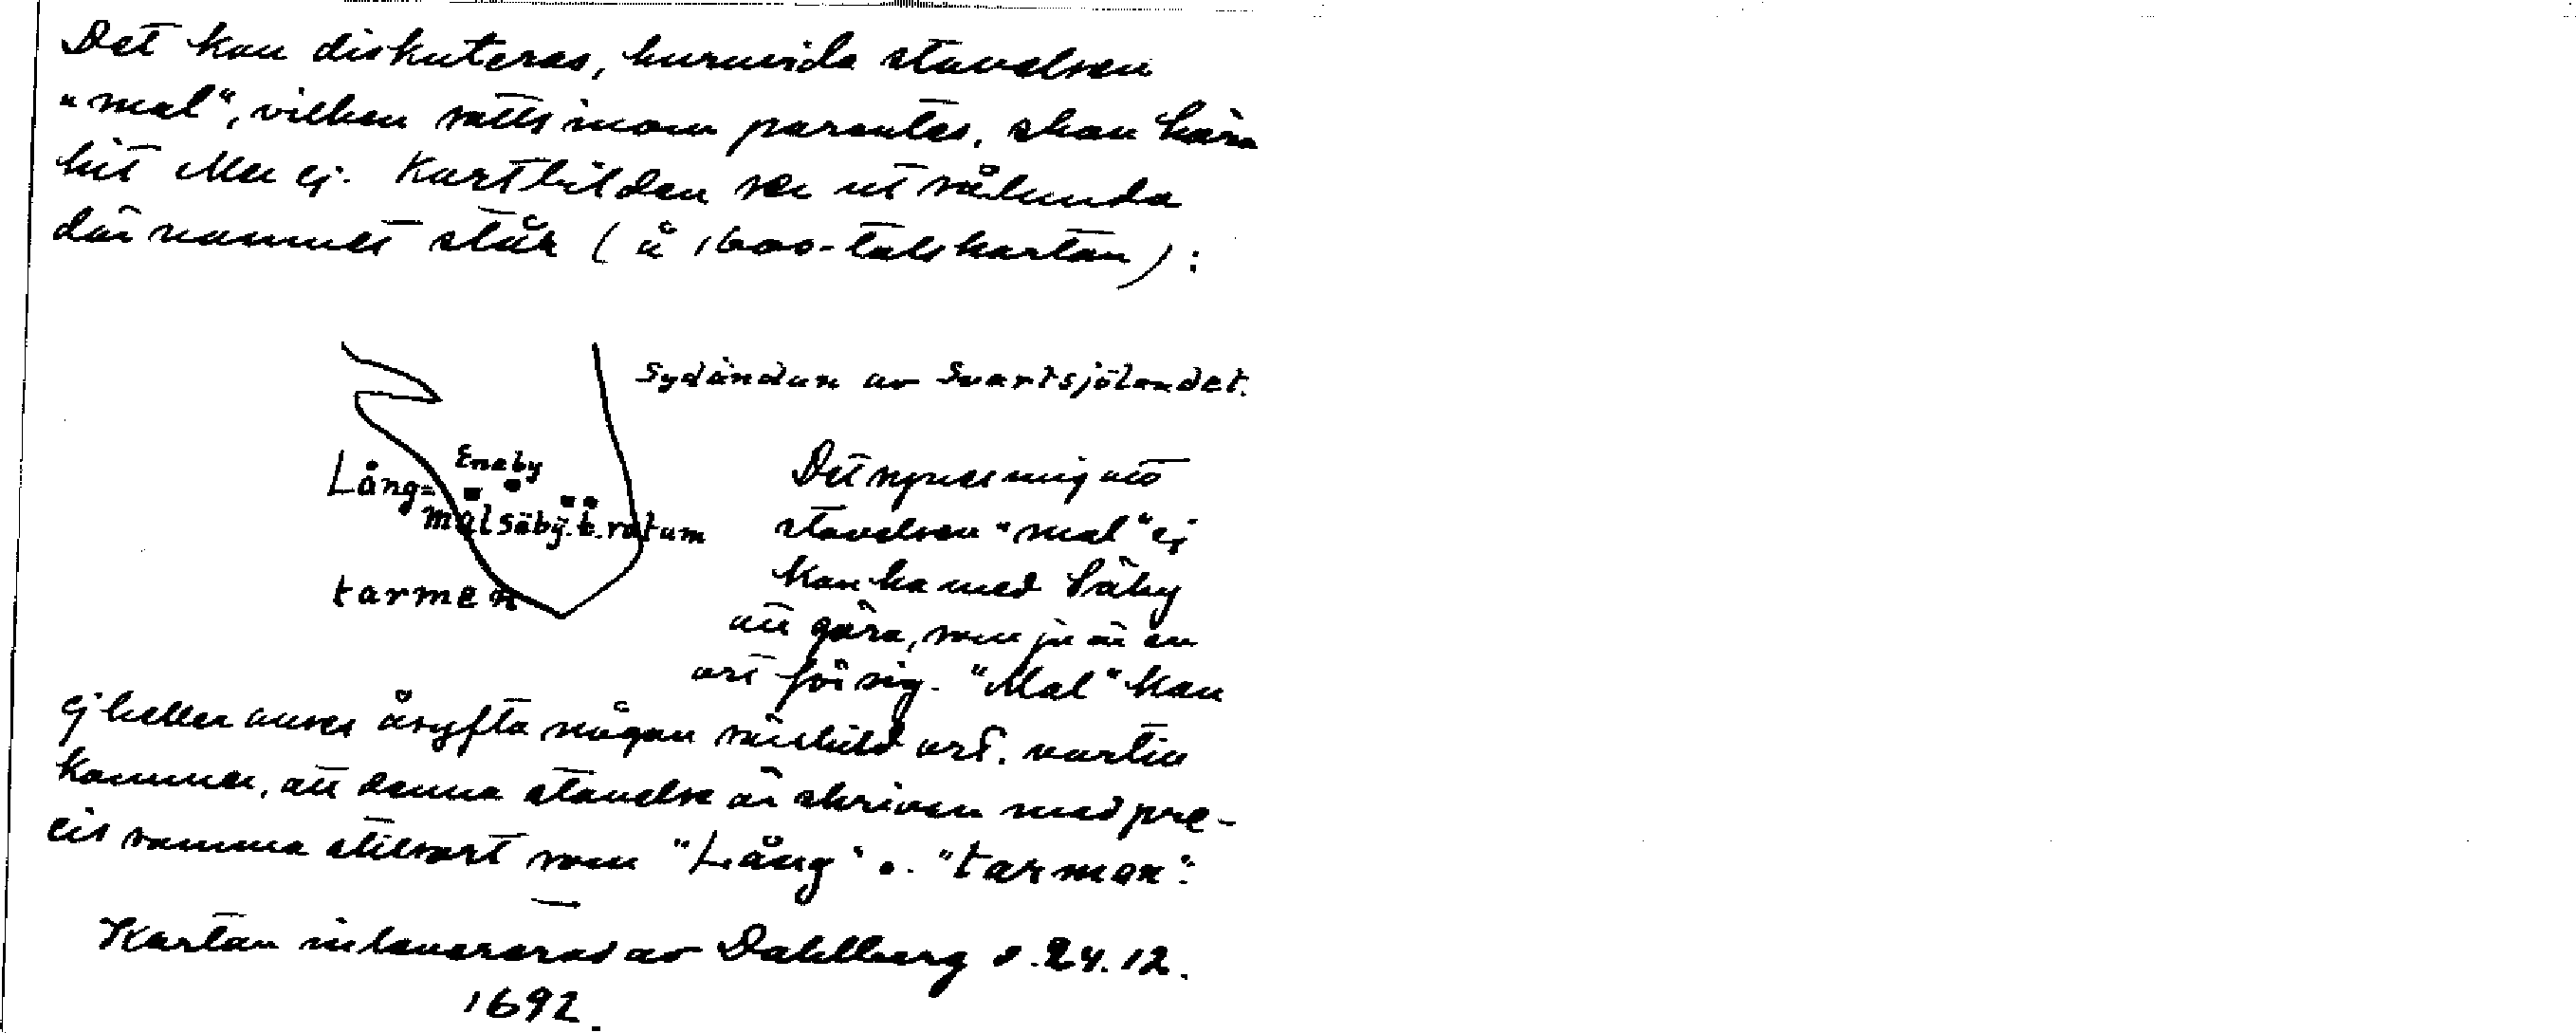 Det kan diskuteras, huruvida stavelsen
"mal", vilken satts inom parentes, skall höra
hit eller ej. Kartbilden ser ut sålunda
där namnet står (å 1600-talskartan):
Sydändan av Svartsjölandet.
Eneby
Lång=
malsäbÿ.b.ratum
tarmen
Det synes mig att
stavelsen "mal" ej
kan ha med Säby
att göra, som ju är en
ort för sig. "Mal" kan
ej heller anses åsyfta någon särskild ort. vartill
kommer, att denna stavelse är skriven med pre-
cis samma stilsort som "Lång" o. "tarmen".
Kartan inlevererad av Dahlberg d. 24.12.
1692.